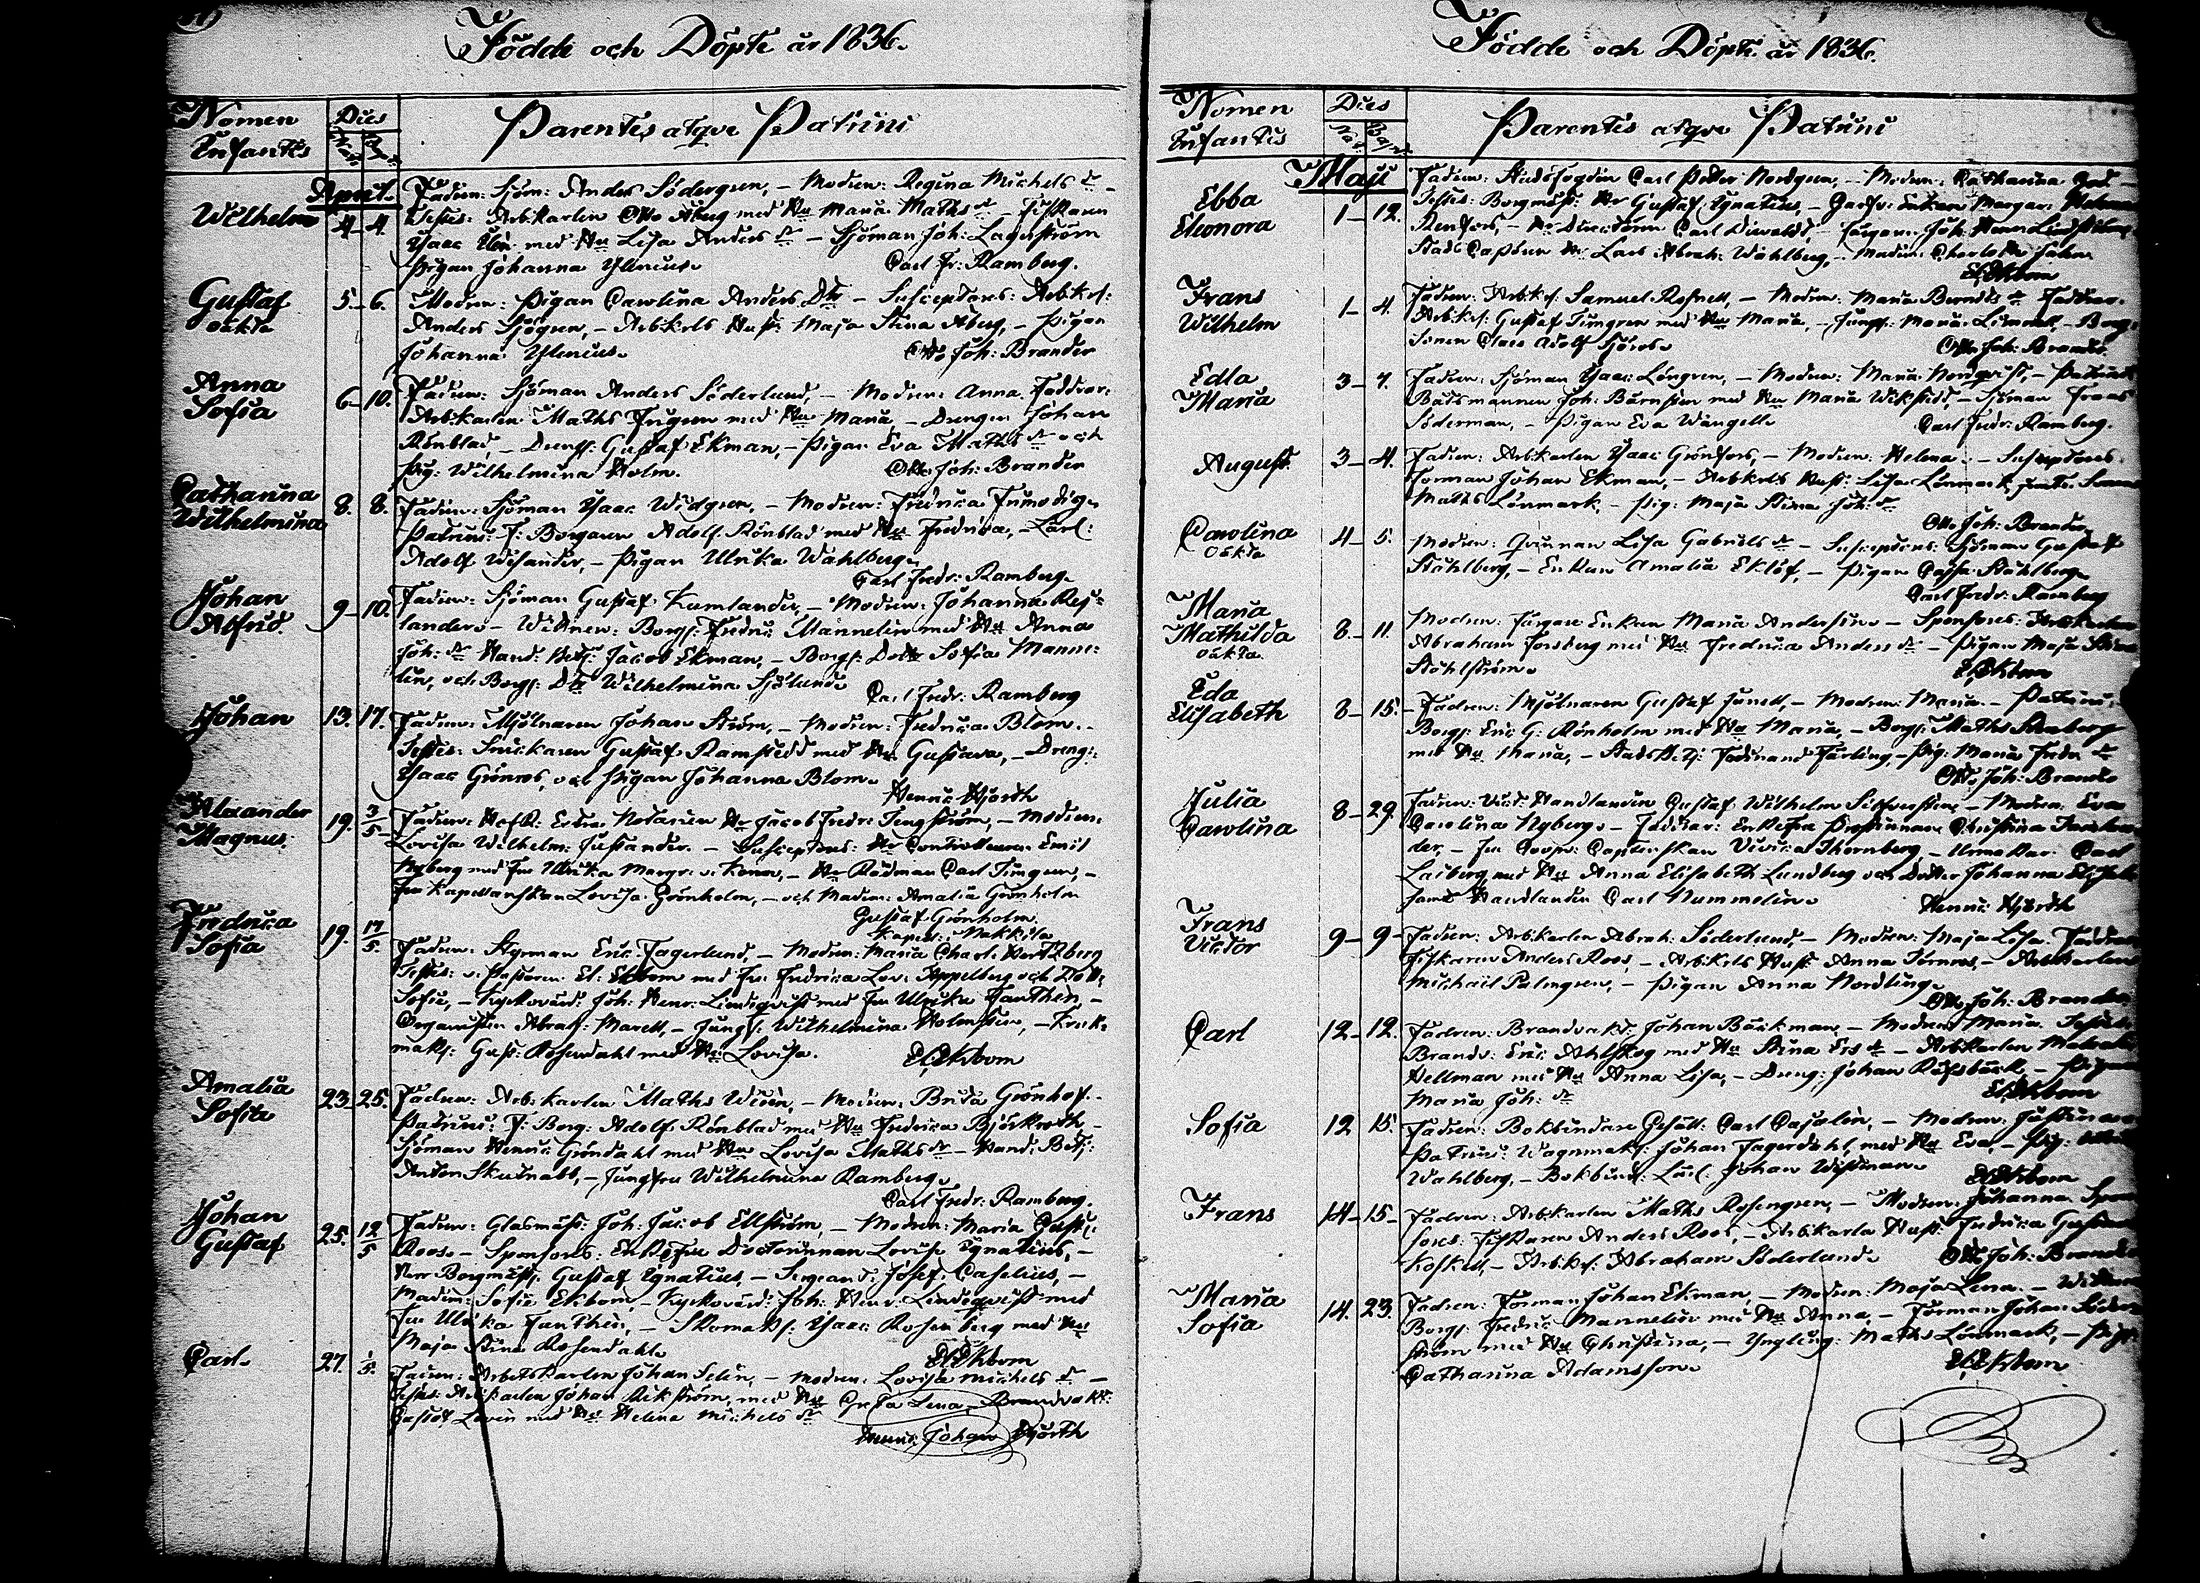 Födde och Döpte år 1836.
Nomen
Infantis
Dies
Parentes atqve Patrini
April.
Wilhelm
4 - 4
Fadren: Sjöm: Anders Södergren, - Modren: Regina Michels dr -
Testes: Arb.karlen Otto Åberg med Hu Maria Maths dr - Fiskaren
Ysaac Elin med Hu Lisa Anders dr - Sjöman Joh: Lagerström
Pigan Johanna Ylenius.
Carl Fr: Ramberg.
Gustaf
oäkta
5 - 6.
Modren: Pigan Carolina Anders Dtr - Susceptores: Arb.krl:
Anders Sjögren, - Arb.karls Hust: Maja Stina Åberg, - Pigan
Johanna Ylenius.
Otto Joh: Brander
Anna
Sofia
6 - 10.
Fadren: Sjöman Anders Söderlund, - Modren: Anna. Faddrar:
Arb.karlen Maths Tingren med Hu Maria - Drengen Johan
Rönblad, - Drengs: Gustaf Ekman, - Pigan Eva Maths dr och
Pig: Wilhelmina Holm.
Otto Joh: Brander
Catharina
Wilhelmina
8. 8.
Fadren: Sjöman Ysaac Widgren, - Modren: Fredrica Frimodig.
Patrini: F: Borgaren Adolf Rönblad med Hu Fredrica, - Lärl:
Adolf Wisander, - Pigan Ulrika Wahlberg.
Carl Fredr: Ramberg.
Johan
Alfrid.
9 - 10.
Fadren: Sjöman Gustaf Kumlander, - Modren: Johanna Rej-
lander. - Wittnen: Borgs: Fredric Mannelin med Hu Anna
Joh: dr Hand: Betj: Jacob Ekman, - Borgs: Dottr Sofia Manne-
lin, och Borgs: Dtr Wilhelmina Sjölund.
Carl Fredr: Ramberg
Johan
13. 17.
Fadren: Mjölnaren Johan Ström, - Modren: Fredrica Blom. -
Testes: Snickaren Gustaf Ramstedt med Hu Gustava, - Dreng:
Ysaac Grönros, och Pigan Johanna Blom.
Henric Hjorth
Alexander
Magnus.
19. 3/5
Fadren: HofR: Extra Notarien Hr Jacob Fredr: Tengström, - Modren:
Lovisa Wilhelm: Justander. - Susceptores: Hr Controlleuren Emil
Nyberg med Fru Ulrika Margr: v. Konow, - Hr Rådman Carl Timgren, -
Fru Kapellanskan Lovisa Grönholm, - och Madem: Amalia Grönholm
Gustaf Grönholm.
Kapell: i Nakkila
Fredrica
Sofia
19. 17/5.
Fadren: Styrman Eric Fagerlund, - Modren: Maria Charl: Wertzberg
Testes: v. Pastoren El: Ekbom med Fru Fredrica Lov: Appelberg och Dottr
Sofie, - Kyrkovärd: Joh: Henr: Lindeqvist med Fru Ulrika Fanthen, -
Organisten Abrah: Marell, - Jungf: Wilhelmina Holmsten, - Kruk-
mak: Gust: Rosendahl med Hu Lovisa.
El Ekbom
Amalia
Sofia
23. 25.
Fadren: Arb: karlen Maths Widén, - Modren: Brita Grönhof. -
Patrini: F: Borg: Adolf Rönblad med Hu Fredrica Björkroth, -
Sjöman Henric Gröndahl med Hu Lovisa Maths dr - Hand: Betj:
Anton Skutnabb, - Jungfru Wilhelmina Ramberg.
Carl Fredr: Ramberg.
Johan
Gustaf
25. 12/5
Fadren: Glasmäst: Joh: Jacob Ellström, - Modren: Maria Gust:
Roos. - Sponsores: Enkefru Doctorinnan Lovis: Ignatius, -
Herr Borgmäst: Gustaf Ignatius, - Sergeant: Josef Caselius, -
Madem: Sofie Ekbom, - Kyrkovärd: Joh: Henr: Lindeqvist med
Fru Ulrika Fanthen, - Skomak: Ysaac Rosenberg med Hu
Maja Stina Rosendahl.
El Ekbom
Carl.
27. 1/5.
Fadren: Arbetskarlen Johan Selin, - Modren: Lovisa Michels dr -
Testes: Arb.karlen Johan Ekström, med Hu Greta Lena, - Brandvakt:
Gustof Levin med Hu Helena Michels dr
Henric Johan Hjorth
Födde och Döpte år 1836.
Nomen
Infantis
Dies
Parentes atqve Patrini
Maji
Ebba
Eleonora
1 - 12.
Fadren: Carl Petter Nordgren, - Modren: Catharina
Testes: Borgmäst: Hr Gustaf Ignatius, - Enkan Margar:
Renfors, - Hr Directören Carl - Färgare: Joh: Henr: Lindström
Stads Cassören Hr Lars Abrah: Wahlberg, - Madem: Charlotta
El Ekbom
Frans
Wilhelm
1 - 4.
Fadren: Arb.k: Samuel Rosnell, - Modren: Maria Berndts dr Faddrar.
Arb.k: Gustaf Timgren med Hu Maria, - Jungf: Maria - Borg:
Sonen Claes Adolf Sjöros.
Otto Joh: Brander.
Edla
Maria
3 - 7.
Fadren: Sjöman Ysaac Löngren, - Modren: Maria Nordqvist, - Patrini
Båtsmannen Joh: Bärnsten med Hu Maria Wikstedt, - Sjöman Frans
Söderman, - Pigan Eva Wangell.
Carl Fredr: Ramberg.
August.
3 - 4.
Fadren: Arb.karlen Ysaac Grönfors, - Modren: Helena. - Susceptores:
Forman Johan Ekman, - Arb.karls Hust: Lisa Lönmark,
Maths Lönmark, - Pig: Maja Stina Joh: dr
Otto Joh: Brander
Carolina
oäkta
4 - 5.
Modren: Qvinnan Lisa Gabriels dr - Susceptores: Sjöman Gustaf
Ståhlberg, - Enkan Amalia Eklöf, - Pigan Cajsa Ståhlberg.
Carl Fredr: Ramberg
Maria
Mathilda
oäkta.
8 - 11.
Modren: Färgare Enkan Maria Andersin. - Sponsores: Arb.karlen
Abraham Forsberg med Hu Fredrica Anders dr - Pigan Maja Stina
Ståhlström.
El Ekbom
Eda
Elisabeth
8 - 15.
Fadren: Mjölnaren Gustaf Junell, - Modren: Maria. - Patrini:
Borgs: Eric G: Rönholm med Hu Maria, - Borgs: Maths
med Hu Maria, - Stads Betj: Ferdinand Färling, - Pig: Maria Fredr: dr
Otto Joh: Brander
Julia
Carolina
8 - 29.
Fadren: Vict: Handlanden Gustaf Wilhelm - Modren: Eva
Carolina Nyberg. - Faddrar: EnkeFru Prostinnan Christina
der, - Fru Coop: Captenskan Vivica Thornberg, - Urmakar: Carl
Laiberg med Hu Anna Elisabeth Lundberg och Dotter Johanna
samt Handlanden Carl Nummelin.
Henric Hjorth
Frans
Victor
9 - 9
Fadren: Arb.karlen Abrah: Söderlund, - Modren: Maja Lisa. Faddrar
Fiskaren Anders Roos, - Arb.karls Hust: Anna Törnros, - Arb.karlen
Michaël Palmgren, - Pigan Anna Nordling.
Otto Joh: Brander
Carl
12 - 12.
Fadren: Brandvakt: Johan Bäckman, - Modren Maria. Testes:
Brandv: Eric Ahlskog med Hu Stina Ers dr - Arb.karlen
Hellman med Hu Anna Lisa, - Dreng: Johan Räfsbäck, - Pigan
Maria Joh: dr
El Ekbom
Sofia
12 15.
Fadren: Bokbindare Gesäll: Carl Cajalén, - Modren: Justina
Patrini: Wagnmak: Johan Fagerdahl, med Hu Eva, - Pig:
Wahlberg, - Bokbind: Lärl: Johan Widman.
El Ekbom
Frans
14 - 15 -
Fadren: Arb:karlen Maths Rosengren, - Modren: Johanna Spon
sores: Fiskaren Anders Roos, - Arb.karls Hust: Fredrica
Koskell, - Arb.k: Abraham Söderlund.
Otto Joh: Brander
Maria
Sofia
14. 23.
Fadren: Forman Johan Ekman, - Modren: Maja Lena. - Wittnen
Borgs: Fredric Mannelin med Hu Anna, - Forman Johan Söder
ström med Hu Christina, - Yngling: Maths Lönmark, - Pig:
Catharina Adamsson.
El Ekbom